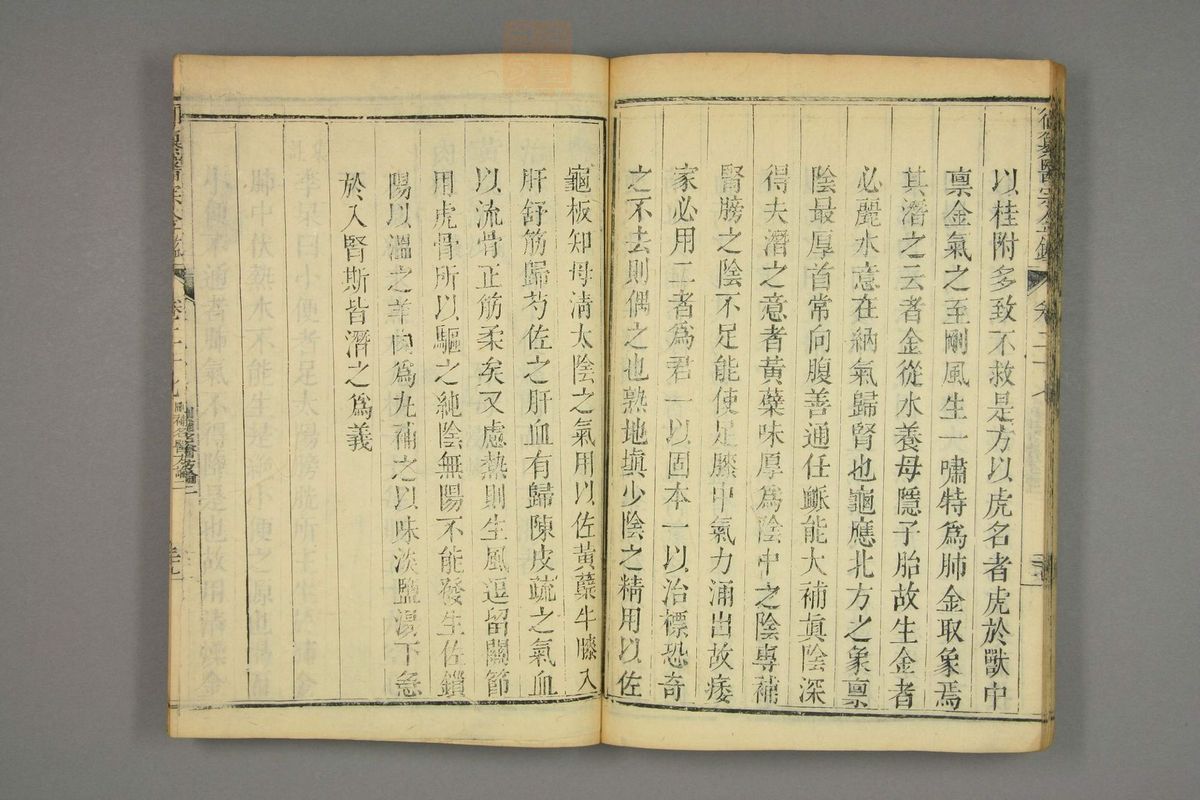 御纂醫宗金鑑 卷二十七
以桂附多致不救是方以虎名者虎於獸中
禀金氣之至剛風生一嘯特爲肺金取象焉
其潛之云者金從水養母隱子胎故生金者
必麗水意在納氣歸腎也龜應北方之象禀
陰最厚首常向腹善通任脈能大補真陰深
得夫潛之意者黃蘗味厚爲陰中之陰專補
腎膀之陰不足能使足膝中氣力涌出故痿
家必用二者爲君一以固本一以治標恐奇
之不去則偶之也熟地塡少陰之精用以佐
龜板知母淸太陰之氣用以佐黃蘗牛膝入
肝舒筋歸芍佐之肝血有歸陳皮疏之氣血
以流骨正筋柔矣又慮熱則生風逗留關節
用虎骨所以驅之純陰無陽不能發生佐鎖
陽以溫之羊肉爲丸補之以味淡鹽湯下急
於入腎斯皆潛之爲義
御纂醫宗金鑑 卷二十七